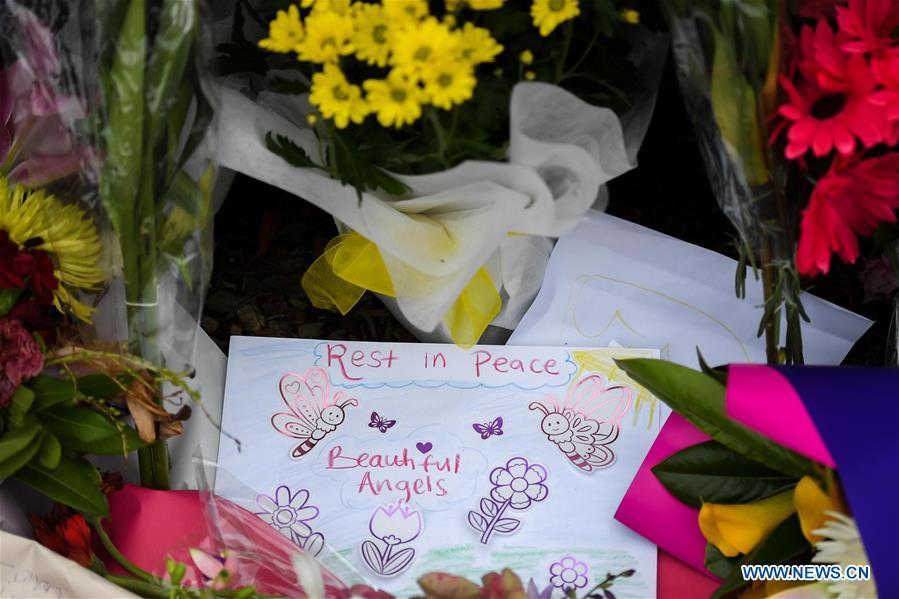 Rest in Peace
Beauthful
Angels
WWW.NEWS.CN